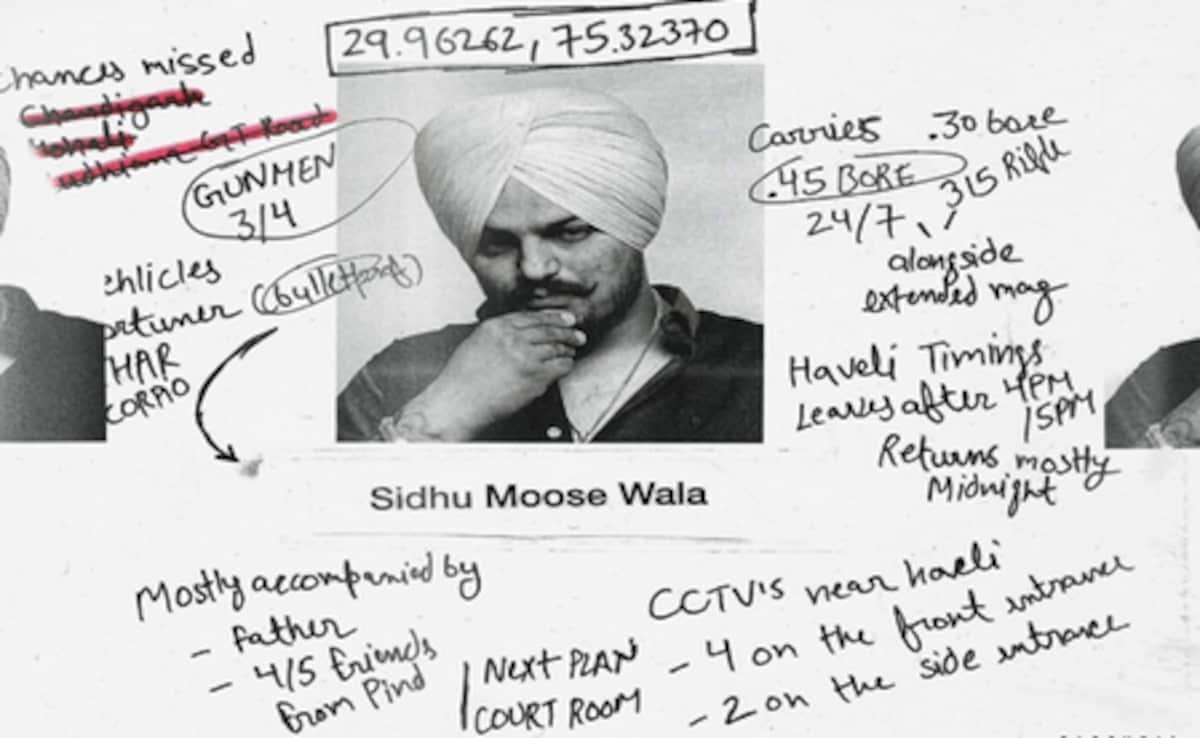 29.96262, 75.32370
chances missed
Chandigarh
Mohali
udhiana GT Road
GUNMEN
3/4
ehlicles
ortuner (bulletproof)
HAR
CORPIO
Carries .30 bore
.45 BORE 315 Rifle
24/7
alongside
extended mag
Haveli Timings
Leaves after 4PM
/5PM
Returns mostly
Midnight
Sidhu Moose Wala
Mostly accompanied by
- Father
- 4/5 Friends
from Pind
NEXT PLAN
COURT ROOM
CCTV's near haveli
- 4 on the front entrance
- 2 on the side entrance